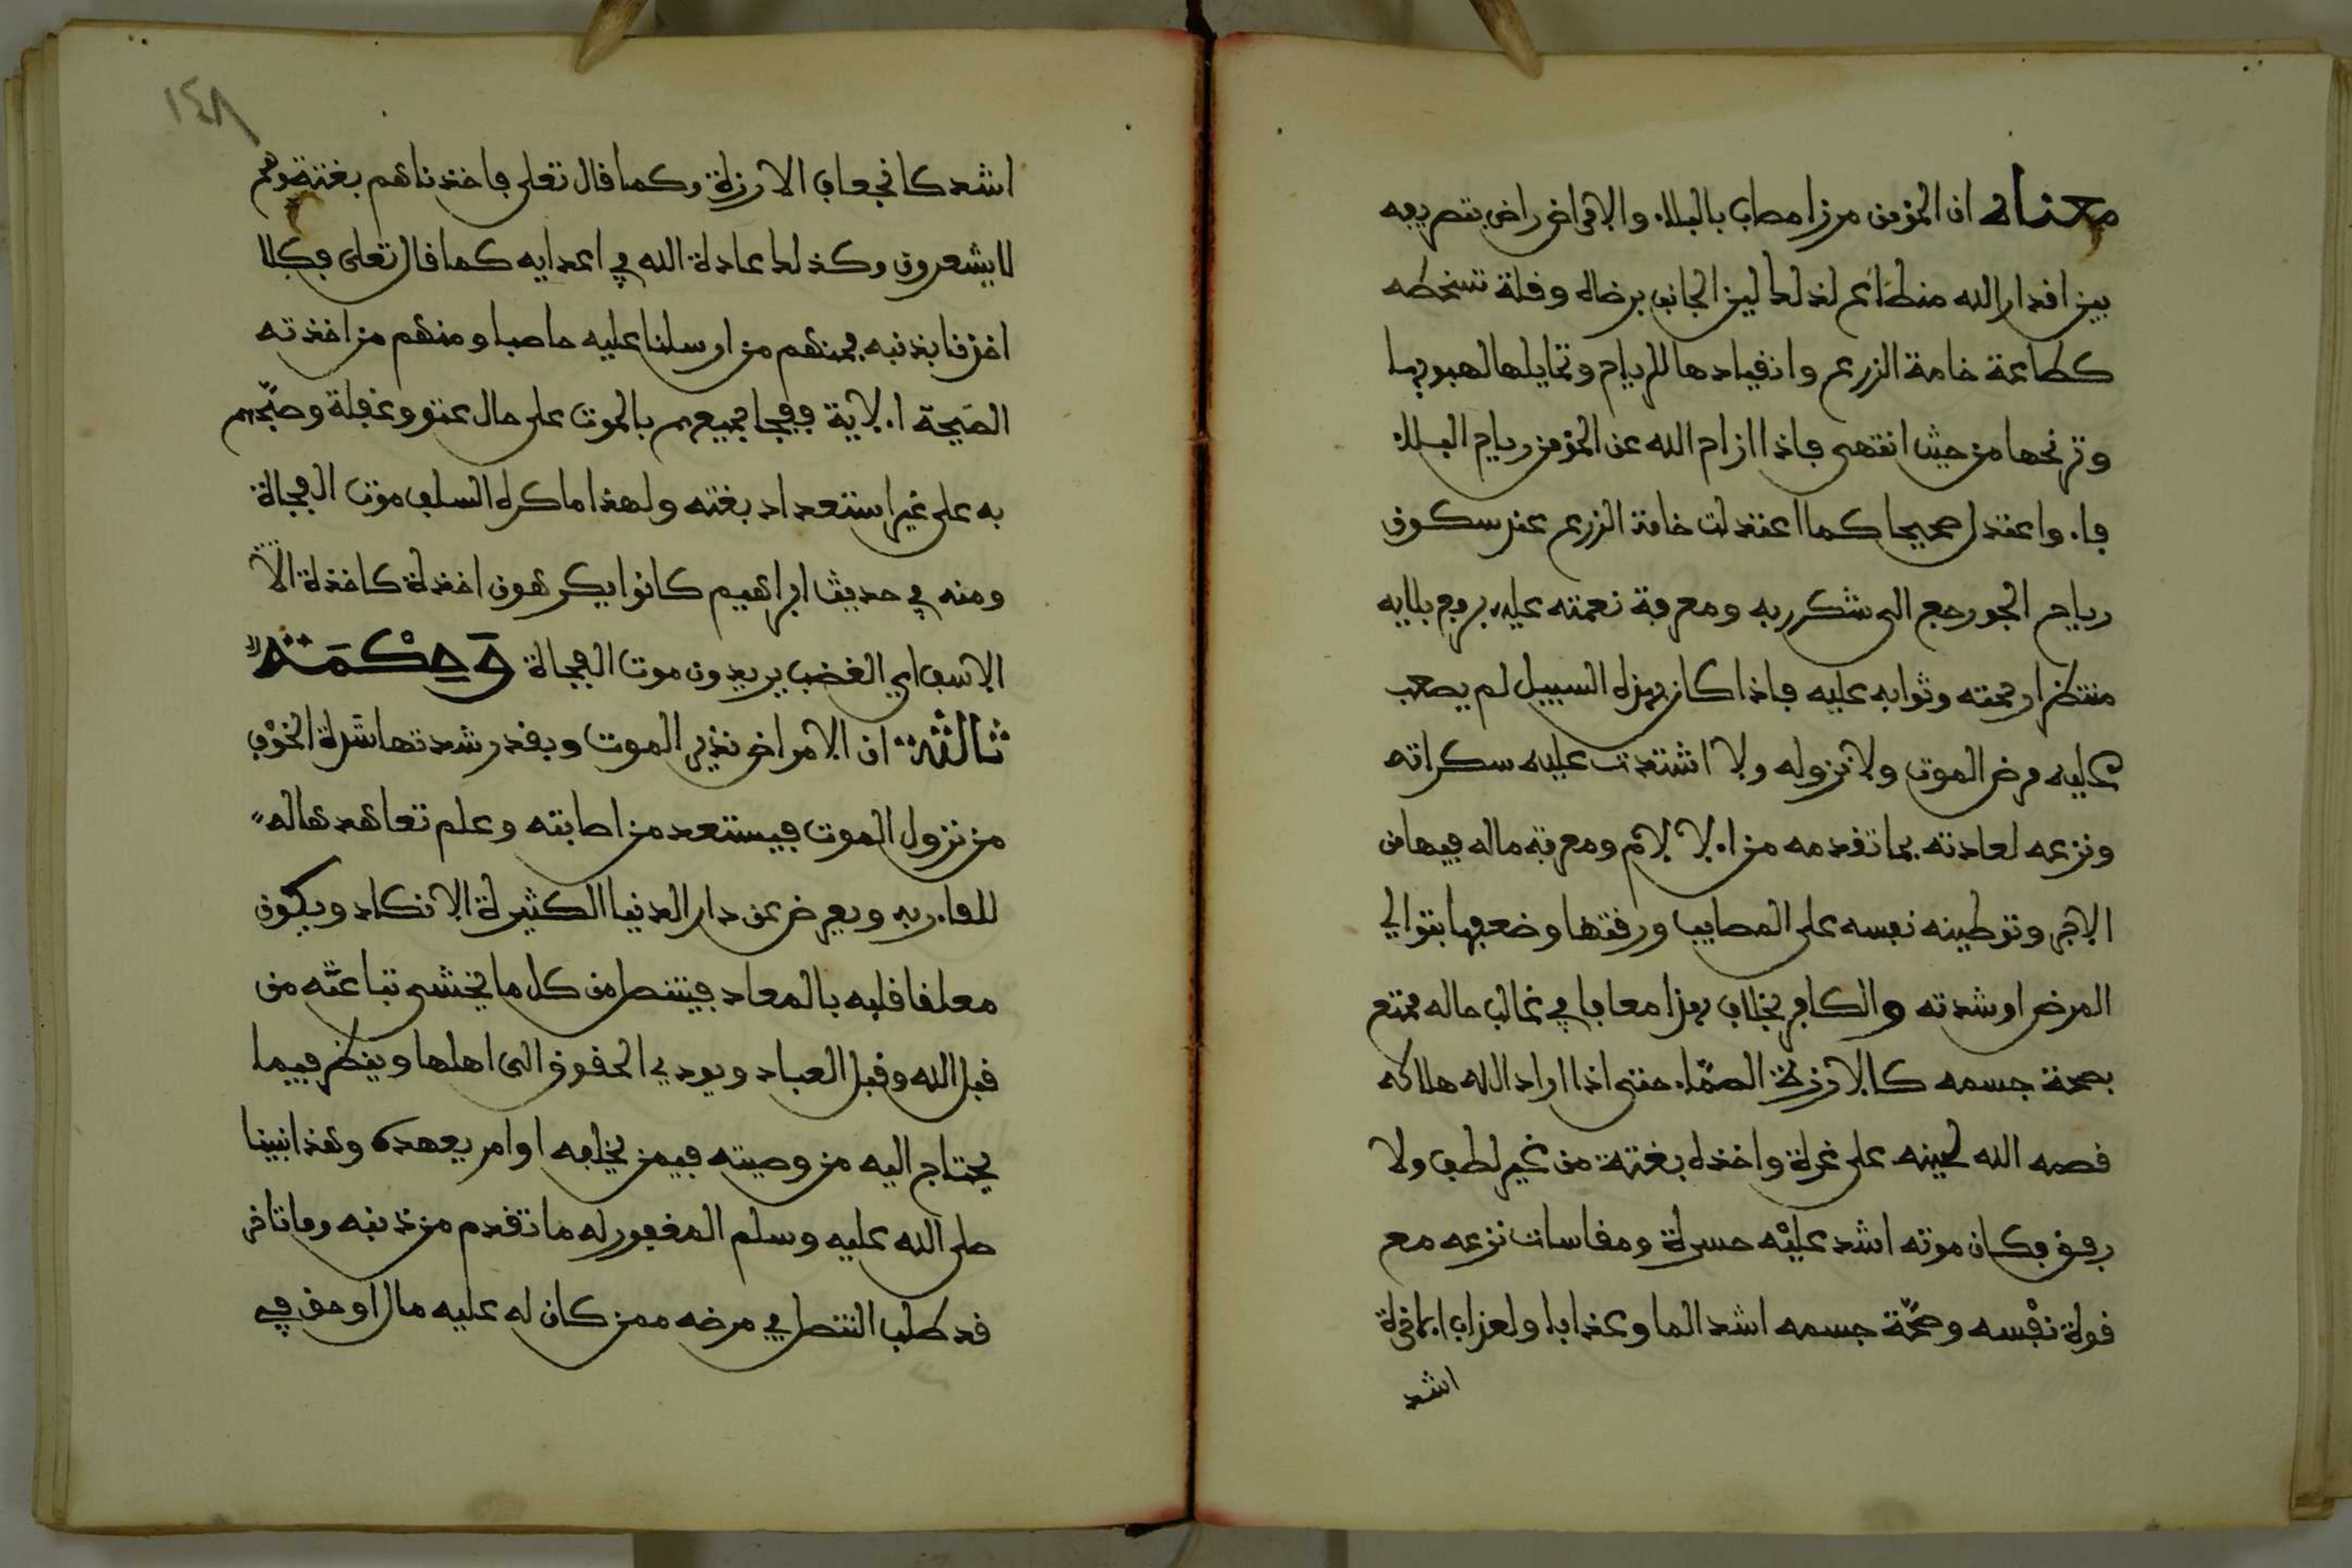 معناه ان المؤمن مرزا مصاب بالبلاء والامراض راض بتصريفه
بين اقدار الله منطاع لذلك لين الجانب برضاه وقلة تسخطه
كطاعة خامة الزرع وانقيادها للرياح وتمايلها لهبوبها
وترنحها من حيث اتتها فاذا ازاح الله عن المؤمن رياح البلاء
فاء واعتدل صحيحا كما اعتدلت خامة الزرع عند سكون
رياح الجو رجع الى شكر ربه ومعرفة نعمته عليه برفع بلايه
منتظرا رحمته وثوابه عليه فاذا كان بهذه السبيل لم يصعب
عليه مرض الموت ولا نزوله ولا اشتدت عليه سكراته
ونزعه لعادته بما تقدمه من الالام ومعرفة ماله فيها من
الاجر وتوطينه نفسه على المصايب ورقتها وضعفها بتوالي
المرض او شدته والكافر بخلاف هذا معافا في غالب حاله ممتع
بصحة جسمه كالارزة الصماء حتى اذا اراد الله هلاكه
قصمه الله لحينه على غرة واخذه بغتة من غير لطف ولا
رفق فكان موته اشد عليه حسرة ومقاسات نزعه مع
قوة نفسه وصحة جسمه اشد الما وعذابا ولعذاب الاخرة
اشد
١٤٨
اشد كانجعاف الارزة وكما قال تعلى فاخذناهم بغتة وهم
لا يشعرون وكذلك عادة الله في اعدايه كما قال تعلى فكلا
اخذنا بذنبه فمنهم من ارسلنا عليه حاصبا ومنهم من اخذته
الصيحة الاية ففجا جميعهم بالموت على حال عتو وغفلة وصبحهم
به على غير استعداد بغتة ولهذا ما كره السلف موت الفجاة
ومنه في حديث ابراهيم كانوا يكرهون اخذة كاخذة الا
الاسف اي الغضب يريدون موت الفجاة وحكمة
ثالثة ان الامراض نذير الموت وبقدر شدتها شدة الخوف
من نزول الموت فيستعد من اصابته وعلم تعاهدها له
للقاء ربه ويعرض عن دار الدنيا الكثيرة الانكاد ويكون
معلقا قلبه بالمعاد فيتنصل من كل ما يخشى تباعته من
قبل الله وقبل العباد ويودي الحقوق الى اهلها وينظر فيما
يحتاج اليه من وصيته فيمن يخلفه او امر يعهده وهذا نبينا
صلى الله عليه وسلم المغفور له ما تقدم من ذنبه وما تاخر
قد طلب التنصل في مرضه ممن كان له عليه مال او حق في